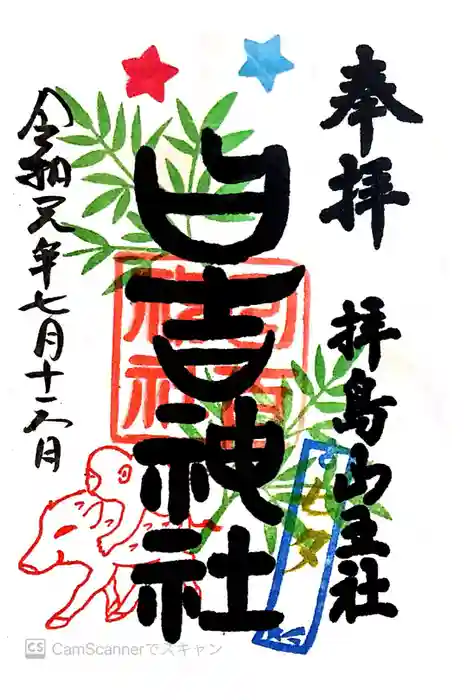 奉拝
拝島山王社
日吉神社
日吉神社
七夕
令和元年七月十日
CS CamScannerでスキャン